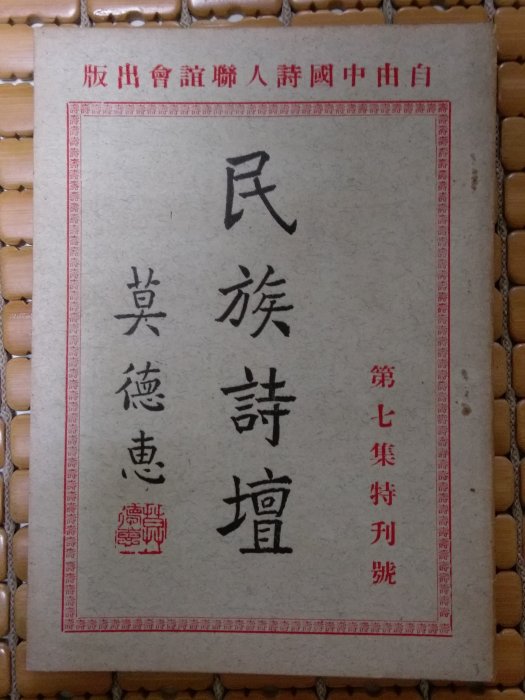 自由中國詩人聯誼會出版
第七集特刊號
民族詩壇
莫德惠
莫德惠